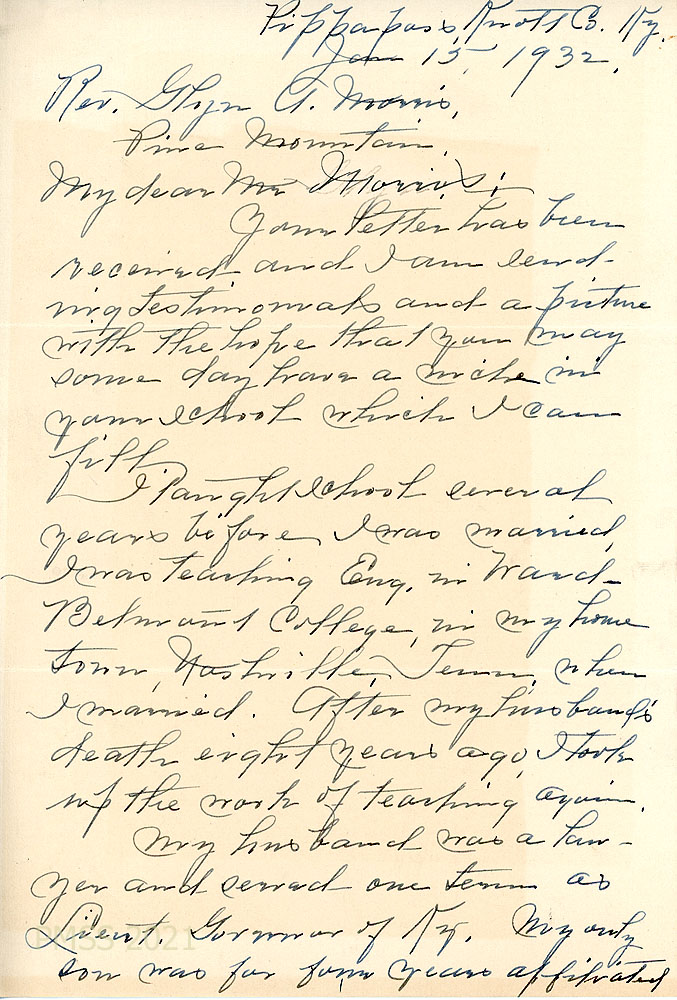 Pippapass, Knott Co. Ky.
Jan 15 1932.
Rev. Glyn A. Morris,
Pine Mountain.
My dear Mr Morris;
Your letter has been
received and I am send-
ing testimonials and a picture
with the hope that you may
some day have a niche in
your school which I can
fill.
I taught school several
years before I was married,
I was teaching Eng. in Ward-
Belmont College, in my home
town, Nashville, Tenn, when
I married. After my husband's
death eight years ago, I took
up the work of teaching again.
My husband was a law-
yer and served one term as
Lieut. Governor of Ky. My only
son was for four years affiliated
PMSS 2021